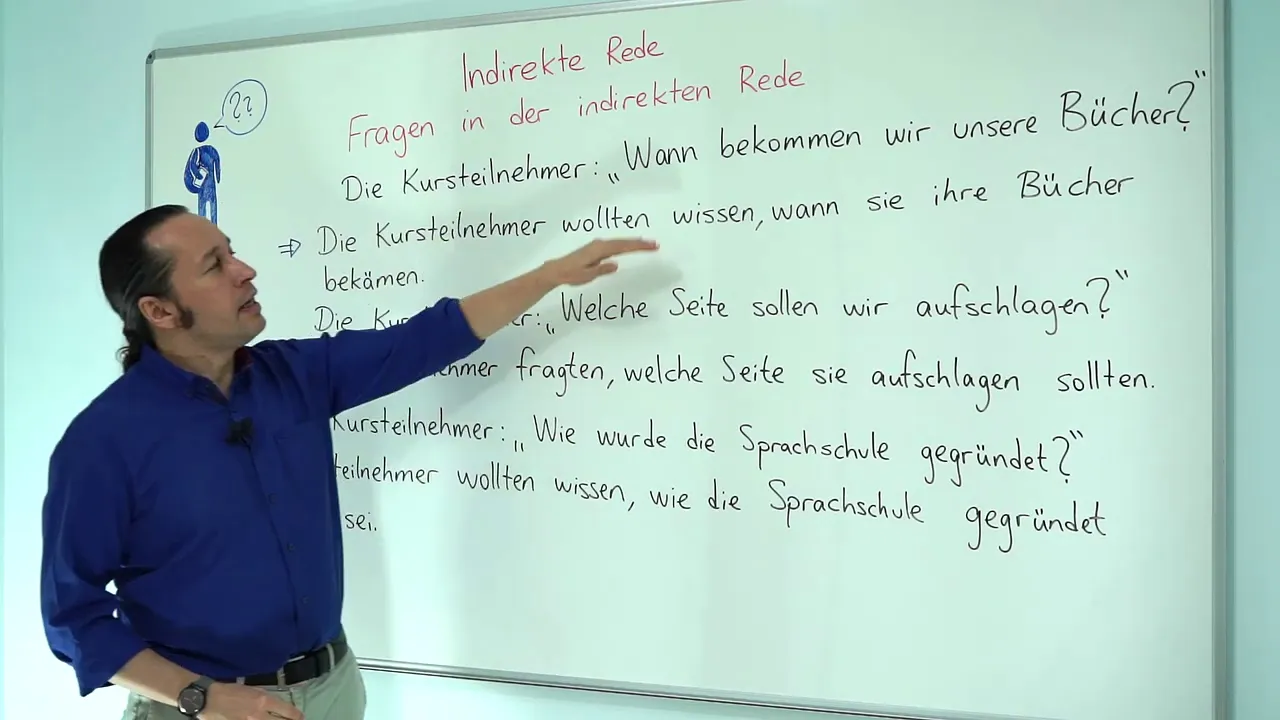 ??
Indirekte Rede
Fragen in der indirekten Rede
Die Kursteilnehmer: „Wann bekommen wir unsere Bücher?“
⇒ Die Kursteilnehmer wollten wissen, wann sie ihre Bücher
bekämen.
Die Ku er: „Welche Seite sollen wir aufschlagen?“
hmer fragten, welche Seite sie aufschlagen sollten.
Kursteilnehmer: „Wie wurde die Sprachschule gegründet?“
teilnehmer wollten wissen, wie die Sprachschule gegründet
sei.